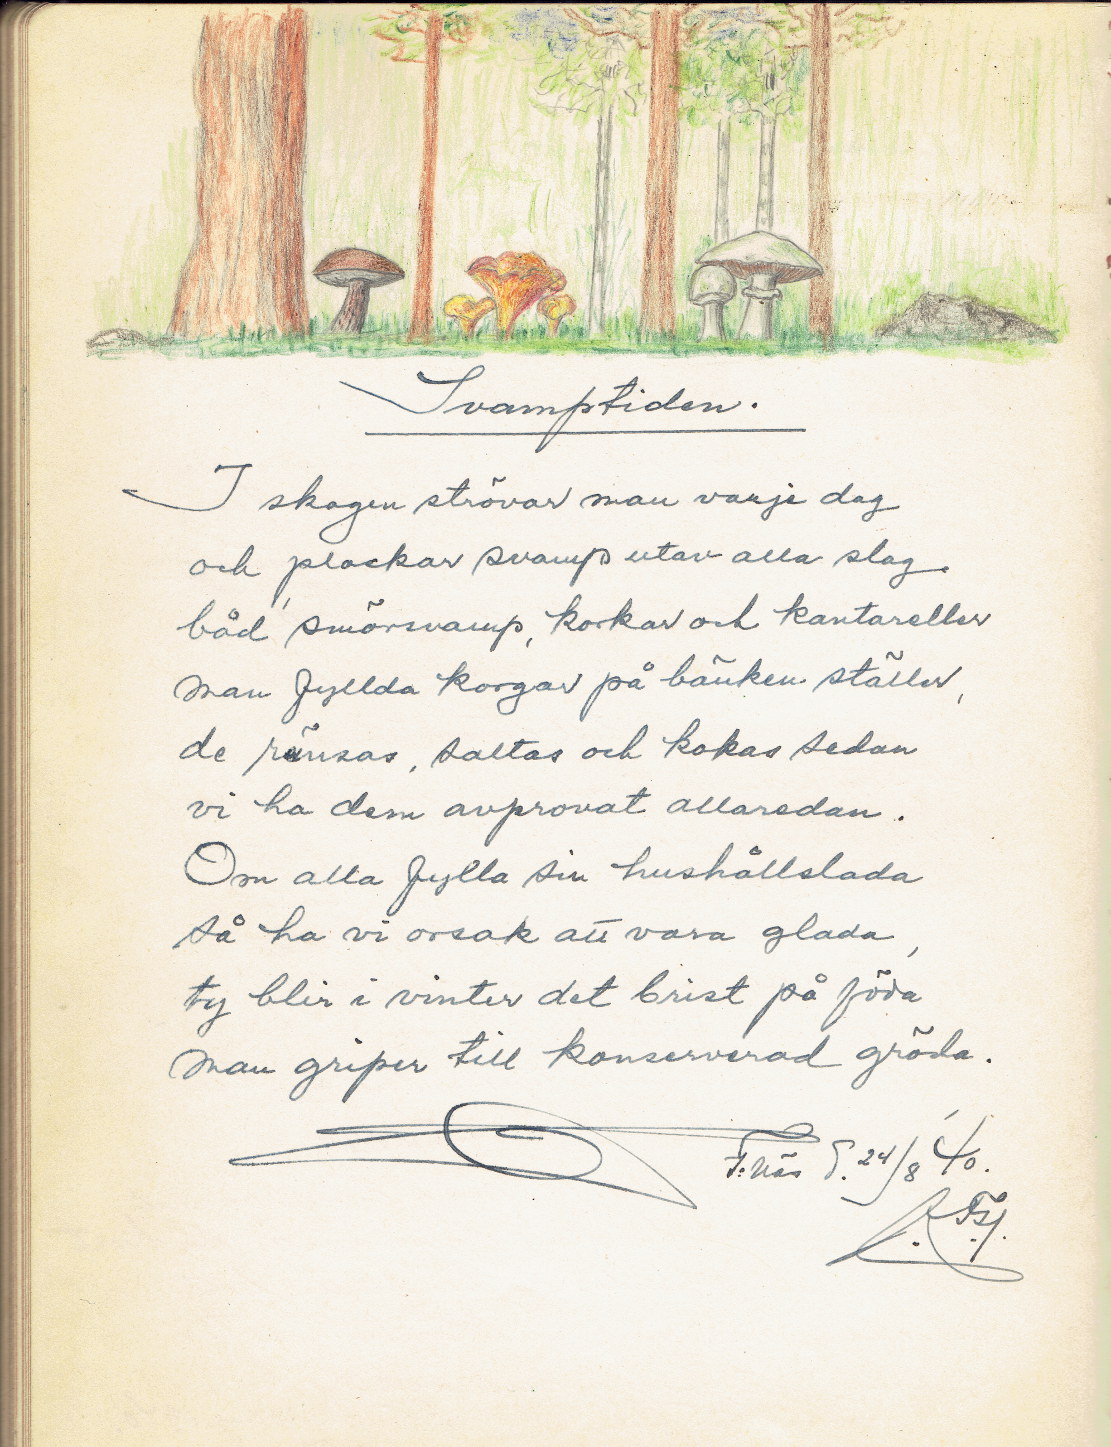 Svamptiden.
I skogen strövar man varje dag
och plockar svamp utav alla slag.
båd' smörsvamp, korkar och kantareller
man fyllda korgar på bänken ställer,
de ränsas, saltas och kokas sedan
vi ha dem avprovat allaredan.
Om alla fylla sin hushållslada
så ha vi orsak att vara glada,
ty blir i vinter det brist på föda
man griper till konserverad gröda.
F:näs d. 24/8 '40.